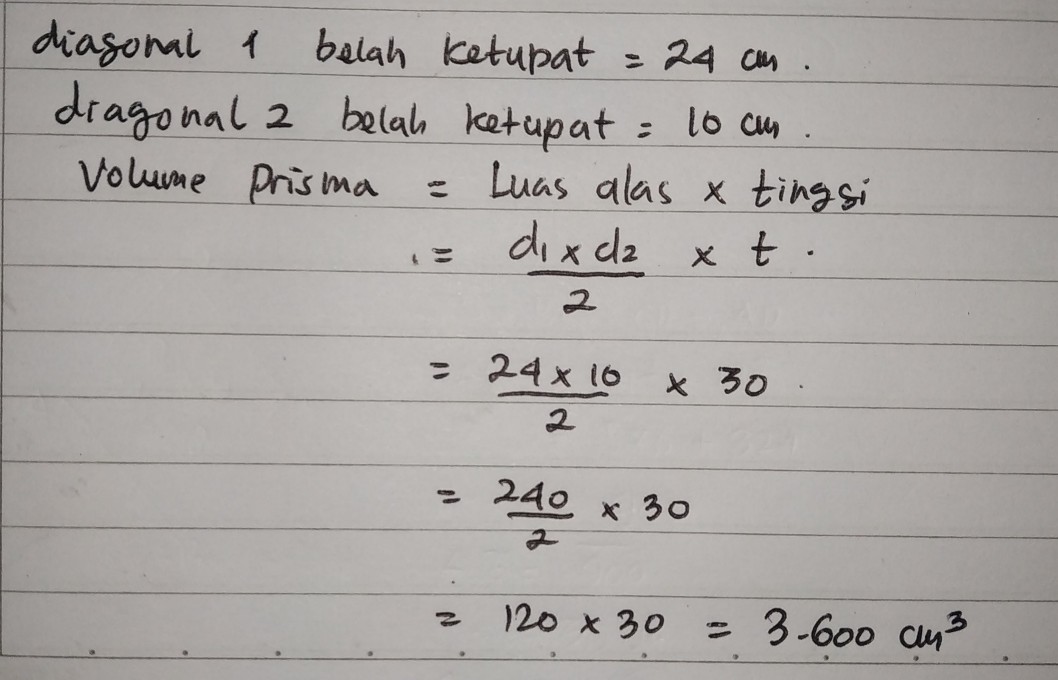 diagonal 1 belah ketupat = 24 cm.
diagonal 2 belah ketupat = 10 cm.
Volume Prisma = Luas alas x tinggi
= d1 x d2 / 2 x t.
= 24 x 10 / 2 x 30.
= 240 / 2 x 30
= 120 x 30 = 3.600 cm³